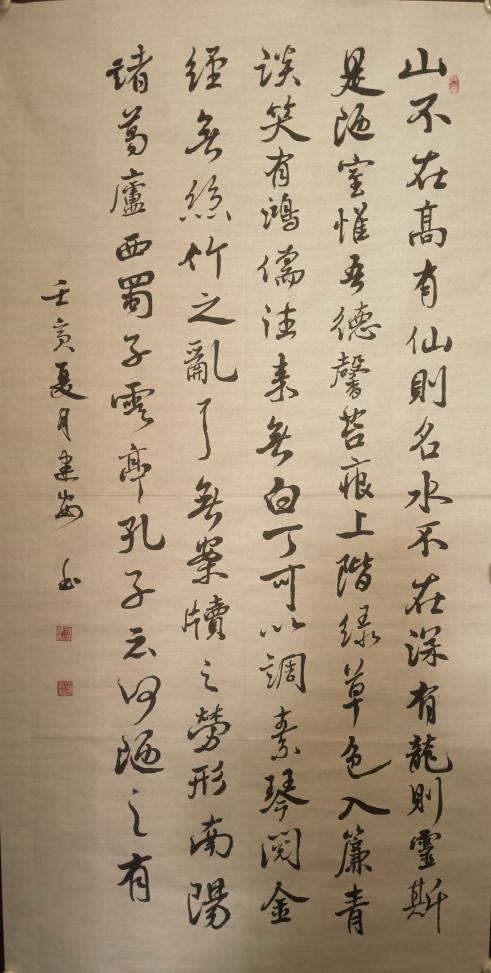 山不在高有仙則名水不在深有龍則靈斯
是陋室惟吾德馨苔痕上階緑草色入簾青
談笑有鴻儒往来無白丁可以調素琴閲金
經無絲竹之亂耳無案牘之勞形南陽
諸葛廬西蜀子雲亭孔子云何陋之有
壬寅夏月建安书